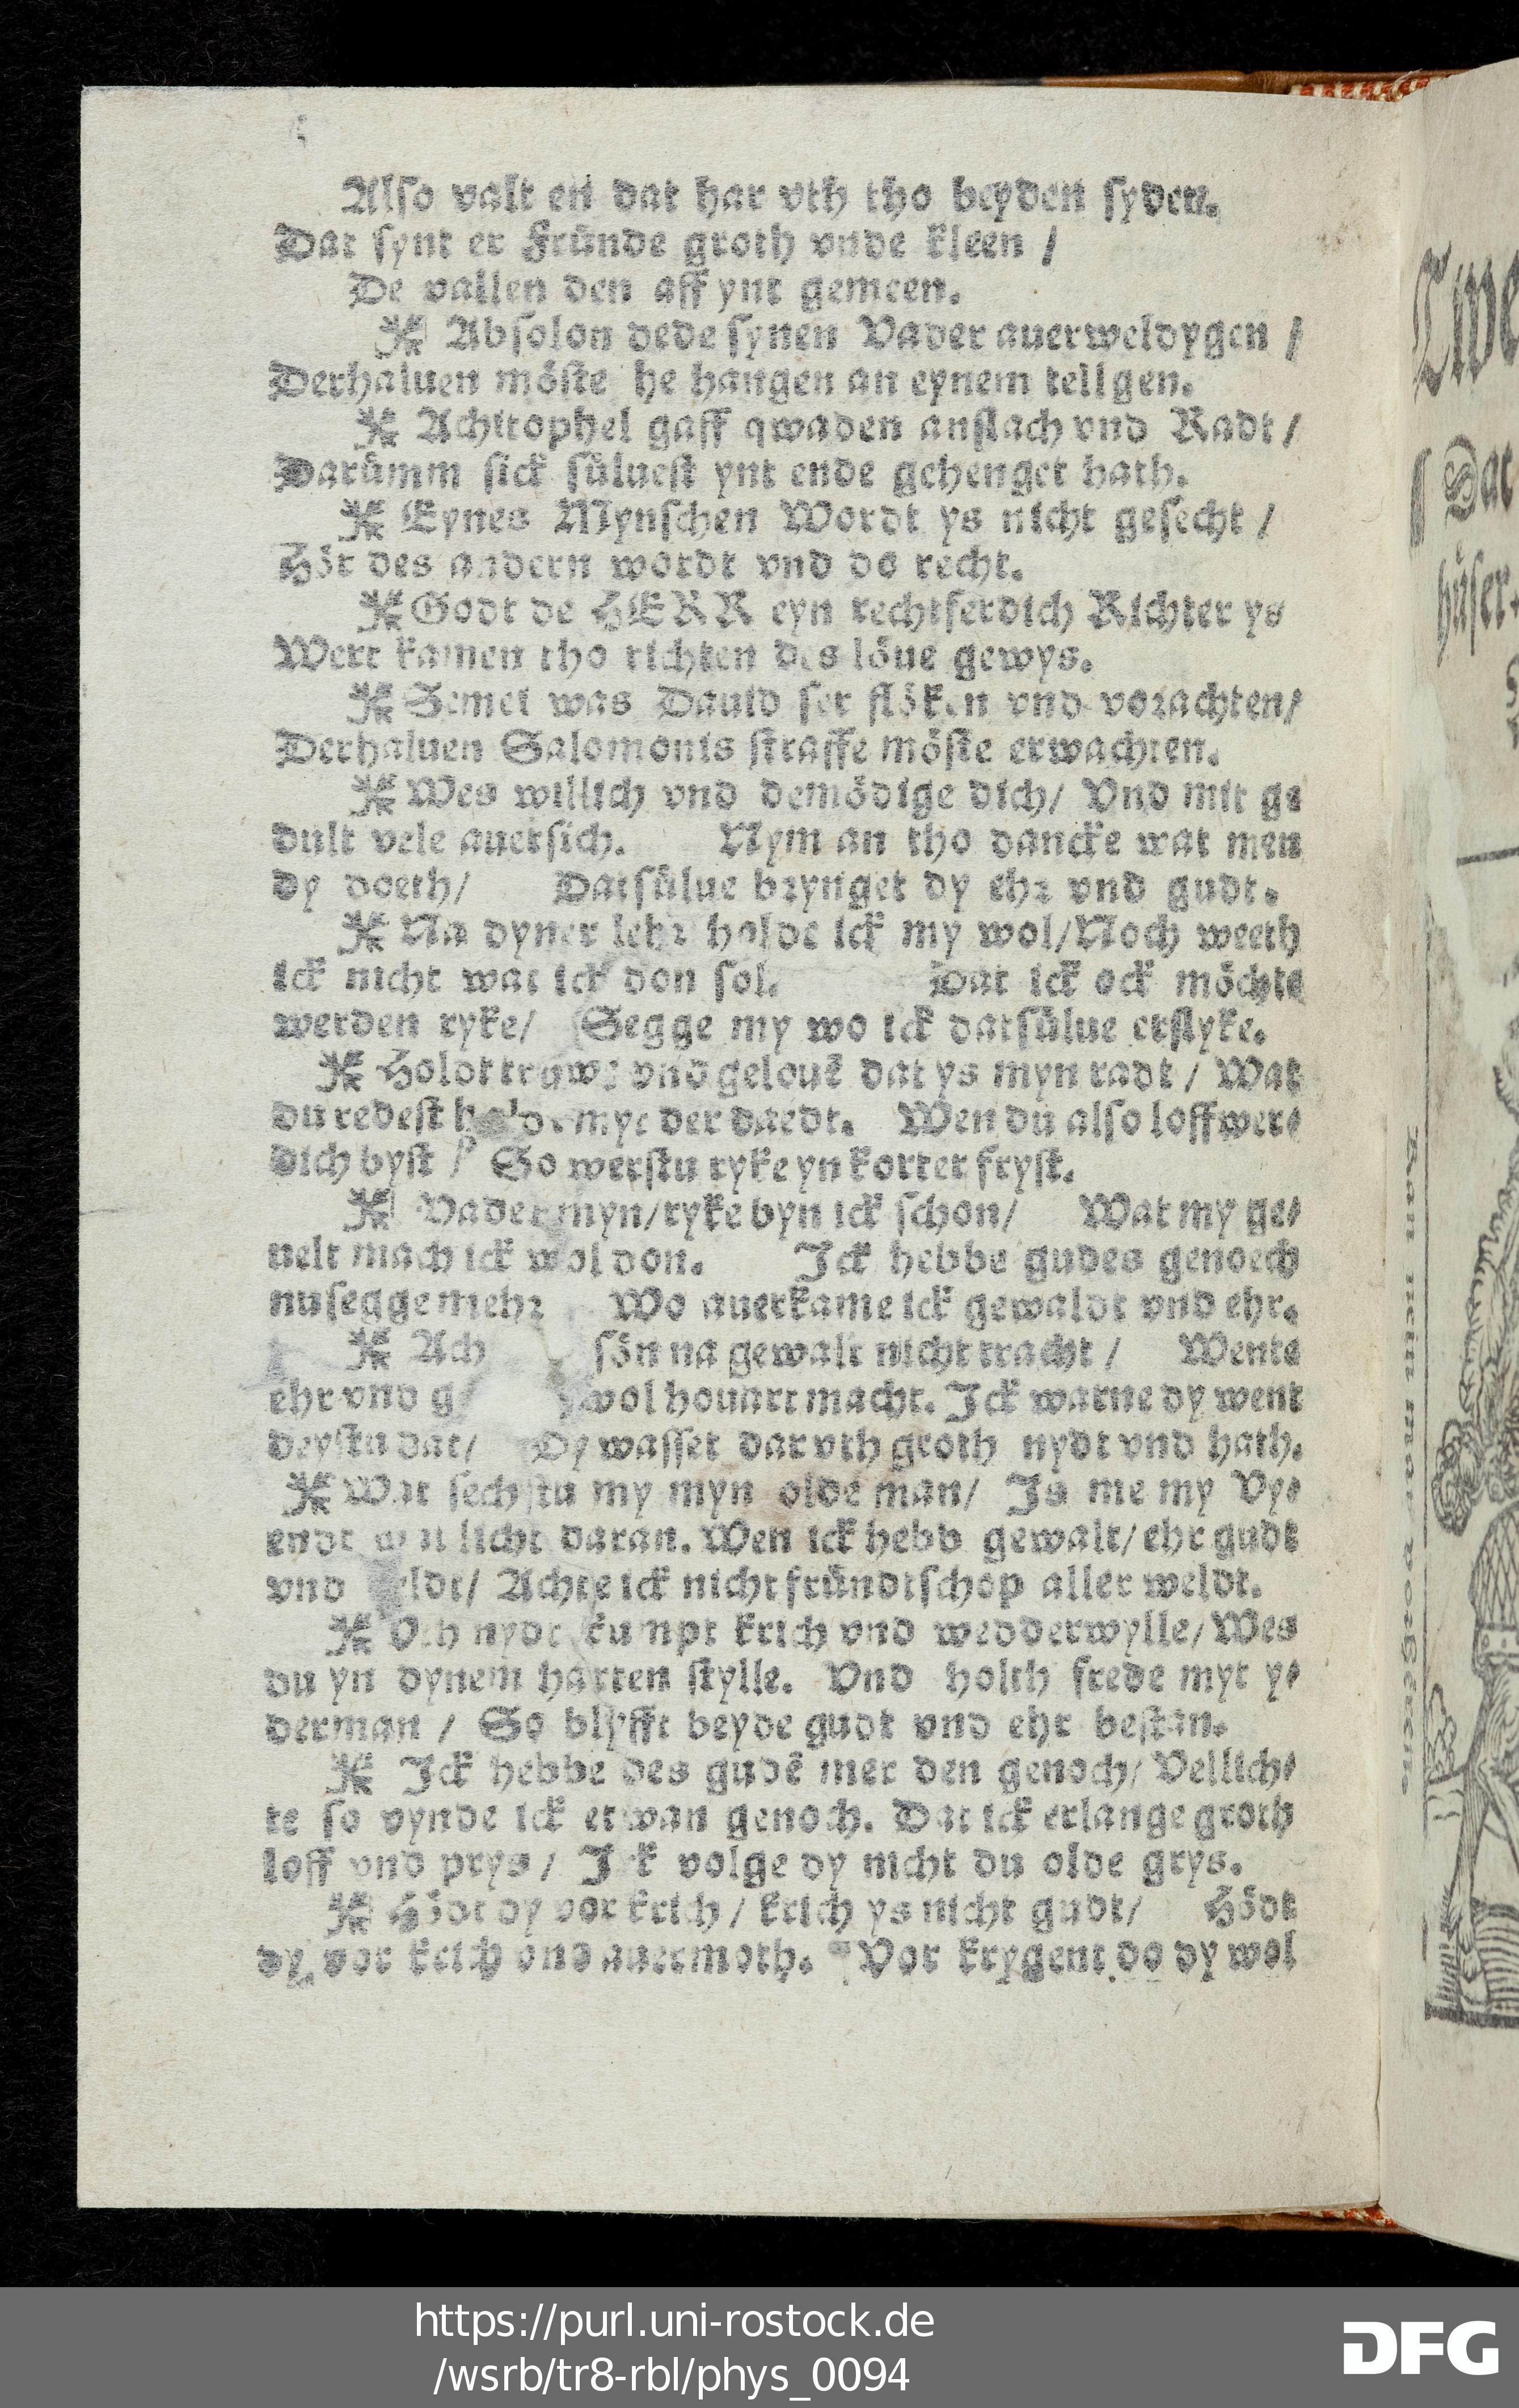 Also valt en dat har vth tho beyden syden.
Dat synt er Fründe groth vnde kleen /
De vallen den aff ynt gemeen.
Absolon dede synen Vader auerweldygen /
Derhaluen möste he hangen an eynem tellgen.
Achitophel gaff qwaden anslach vnd Radt /
Darümm sick süluest ynt ende gehenget hath.
Eynes Mynschen Wordt ys nicht gesecht /
Hör des andern wordt vnd do recht.
Godt de HERR eyn rechtferdich Richter ys
Wert kamen tho richten des löue gewys.
Semei was Dauid ser flöken vnd vorachten/
Derhaluen Salomonis straffe möste erwachten.
Wes willich vnd demödige dich/ Vnd mit ge
dult vele auersich. Nym an tho dancke wat men
dy doeth/ Datsülue brynget dy ehr vnd gudt.
Na dyner lehr holde ick my wol/Noch weeth
ick nicht wat ick don sol. Dat ick ock möchte
werden ryke/ Segge my wo ick datsülue erslyke.
Holdt truwe vnd gelouē dat ys myn radt / Wat
du redest myt der daedt. Wen du also loffwer⸗
dich byst / So werstu ryke yn korter fryst.
Vader myn/ryke byn ick schon/ Wat my ge⸗
uelt mach ick wol don. Ick hebbe gudes genoech
nu segge mehr Wo auerkame ick gewaldt vnd ehr.
Ach sön na gewalt nicht tracht / Wente
ehr vnd g wol houart macht. Ick warne dy went
deystu dat/ Dy wasset dar vth groth nydt vnd hath.
Wat sechstu my myn olde man/ Is me my Vy⸗
endt licht daran. Wen ick hebb gewalt/ ehr gudt
vnd eldt/ Achte ick nicht fründtschop aller weldt.
Vth nydt kumpt krich vnd wedderwylle/ Wes
du yn dynem harten stylle. Vnd holth frede myt y⸗
derman / So blyfft beyde gudt vnd ehr bestan.
Ick hebbe des gudē mer den genoch/ Vellich⸗
te so vynde ick etwan genoch. Dat ick erlange groth
loff vnd prys / Ick volge dy nicht du olde grys.
Hödt dy vor krich / krich ys nicht gudt/ Hödt
dy vor krich vnd auermoth. Vor krygent do dy wol
https://purl.uni-rostock.de
/wsrb/tr8-rbl/phys_0094
DFG